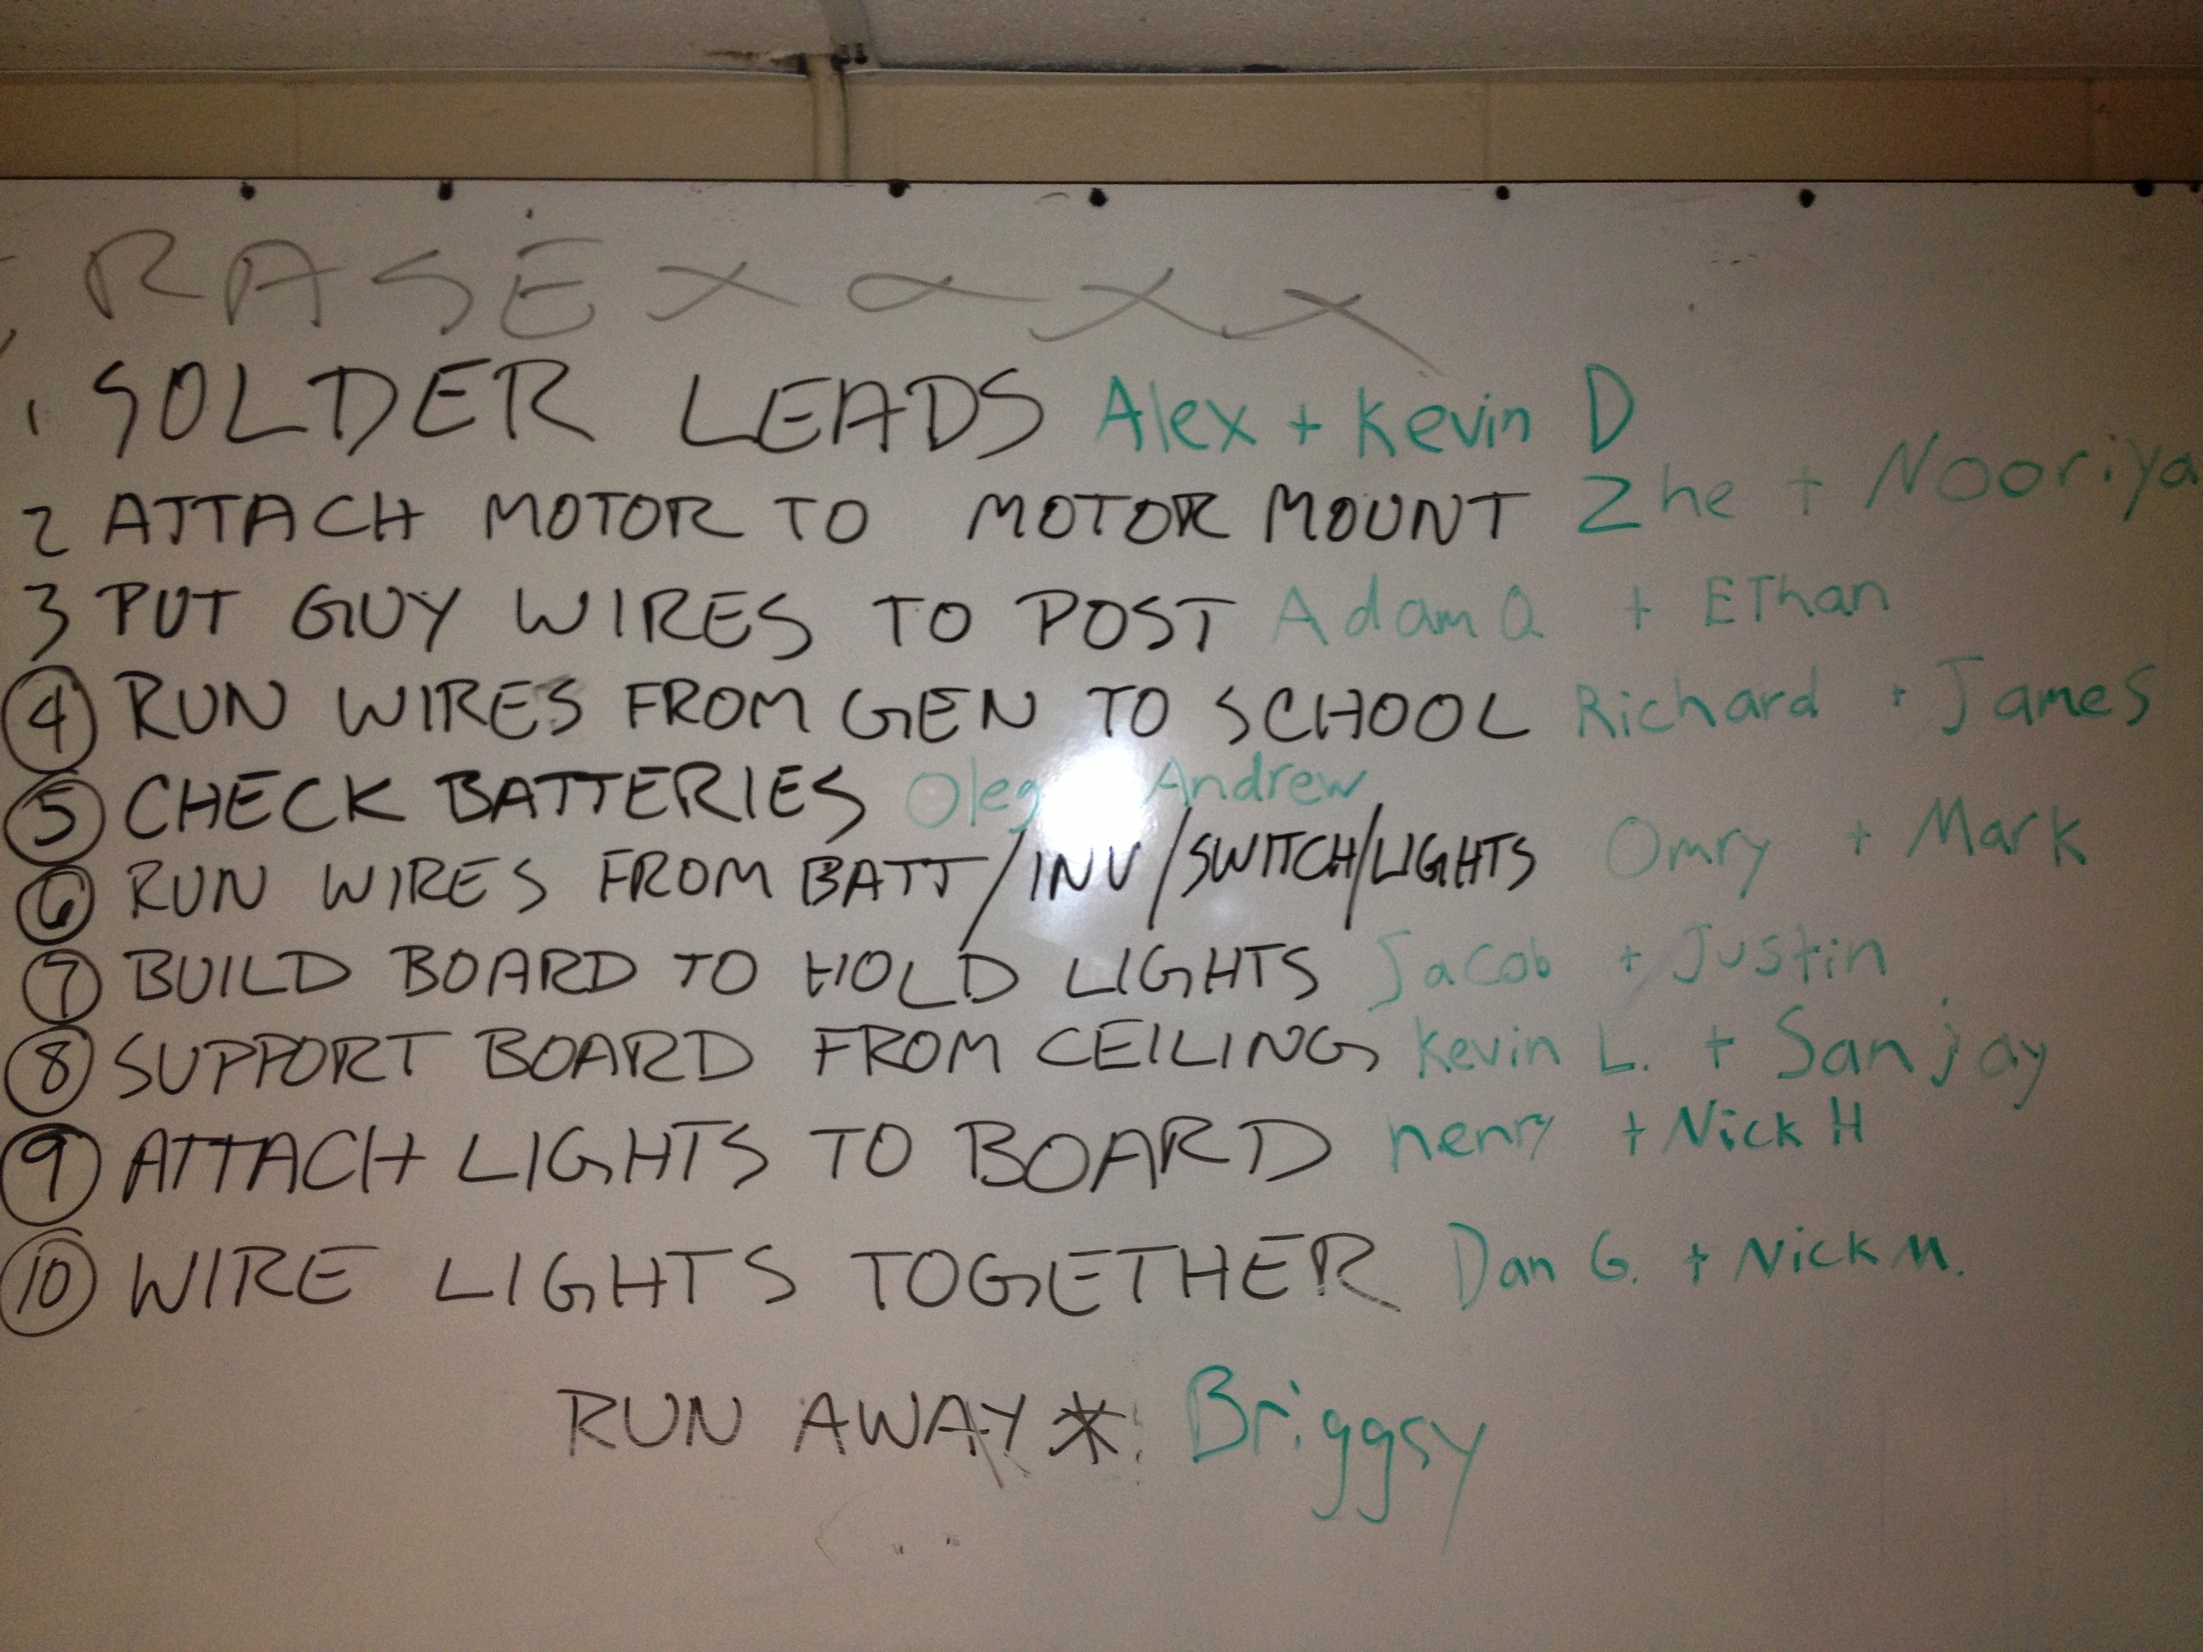 RASE x x x x
1 SOLDER LEADS Alex + Kevin D
2 ATTACH MOTOR TO MOTOR MOUNT Zhe + Nooriya
3 PUT GUY WIRES TO POST Adam Q + EThan
4 RUN WIRES FROM GEN TO SCHOOL Richard + James
5 CHECK BATTERIES Oleg Andrew
6 RUN WIRES FROM BATT/INV/SWITCH/LIGHTS Omry + Mark
7 BUILD BOARD TO HOLD LIGHTS Jacob + Justin
8 SUPPORT BOARD FROM CEILING Kevin L. + Sanjay
9 ATTACH LIGHTS TO BOARD henry + Nick H
10 WIRE LIGHTS TOGETHER Dan G. + Nick M.
RUN AWAY * Briggsy